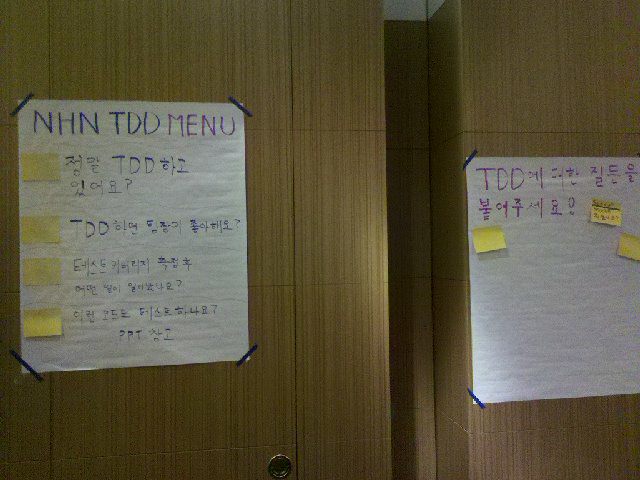 NHN TDD MENU
정말 TDD 하고
있어요?
TDD 하면 팀장이 좋아해요?
테스트 커버리지 측정 후
어떤 일이 일어났나요?
이런 코드도 테스트 하나요?
PPT 참고
TDD에 대한 질문을
붙여주세요!